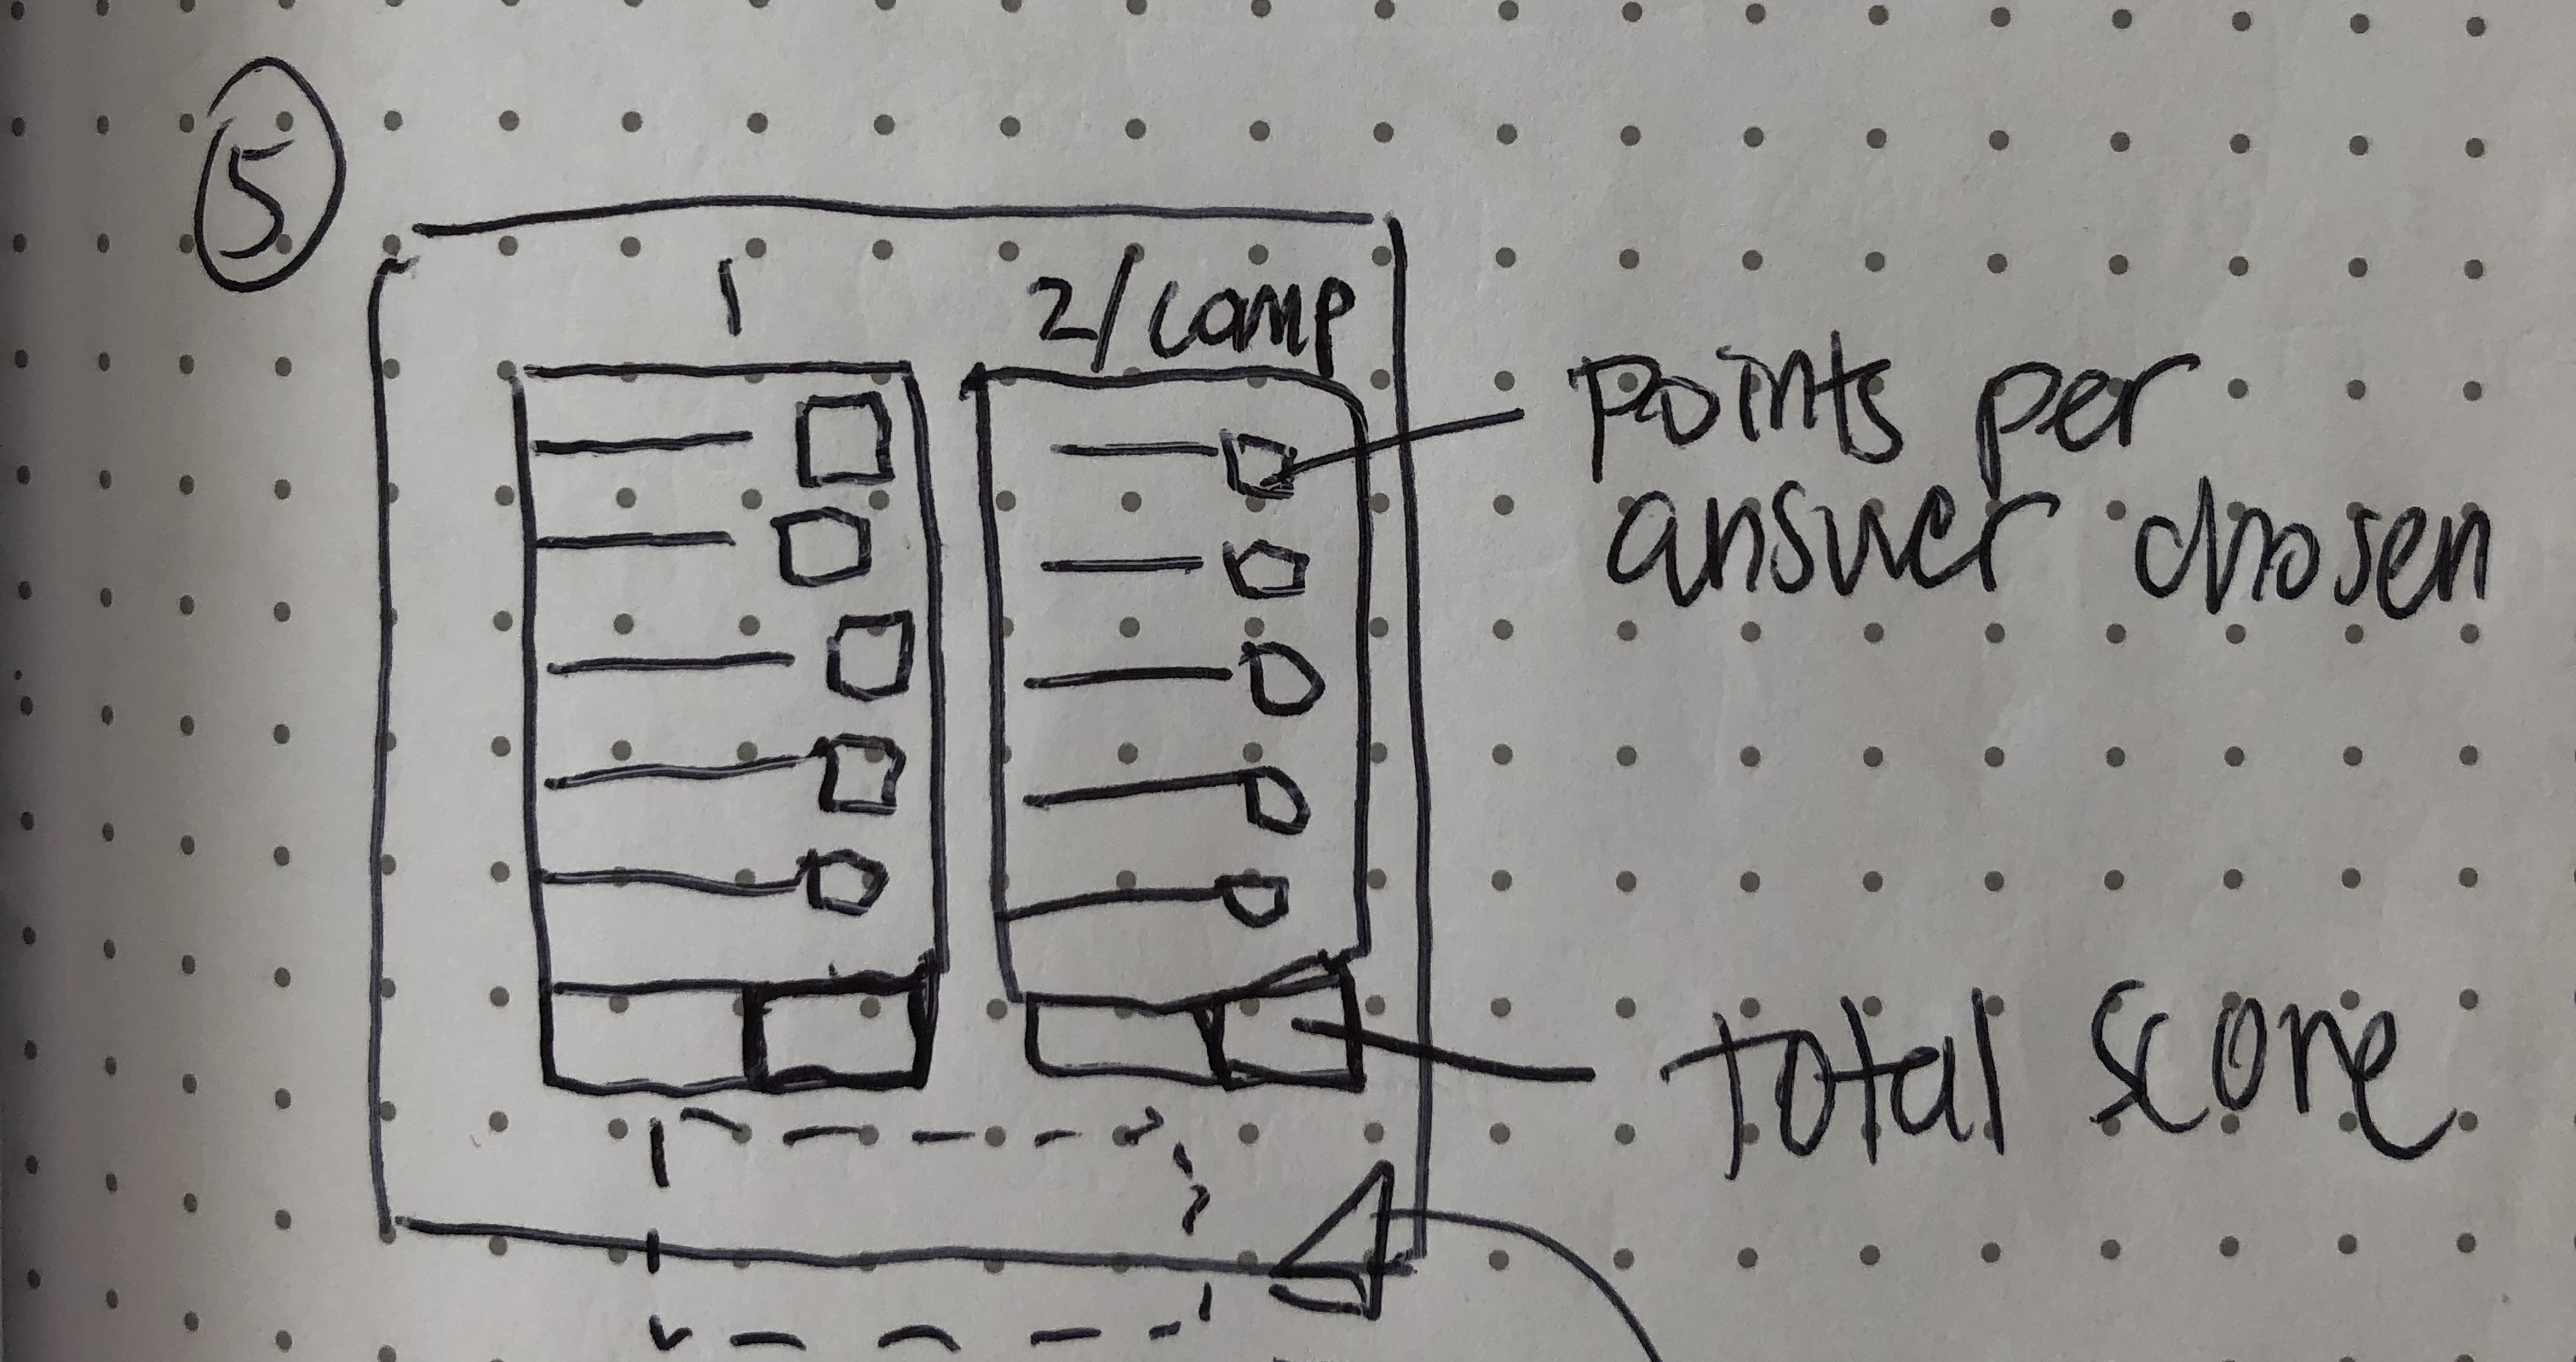 5
1
2/comp
points per
answer chosen
total score